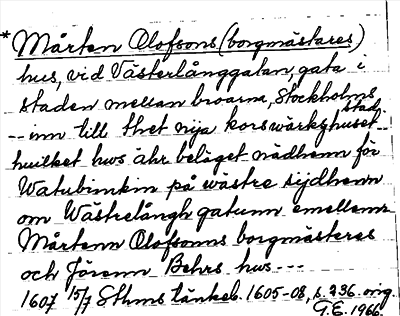 * Mårten Olofsons (borgmästares)
hus, vid Västerlånggatan, gata i
staden mellan broarna, Stockholms
stad.
-- inn till thet nija korswärkzhuset
huilket hws ähr beläget nädhenn för
Watubinkin på wästre sijdhenn
om Wästrelångh gatunn emellenn
Mårtenn Olofsonns borgmästeres
och Jörenn Behrs hws ---
1607 15/7 Sthms tänkeb. 1605-08, s. 236. orig.
G.E. 1966.